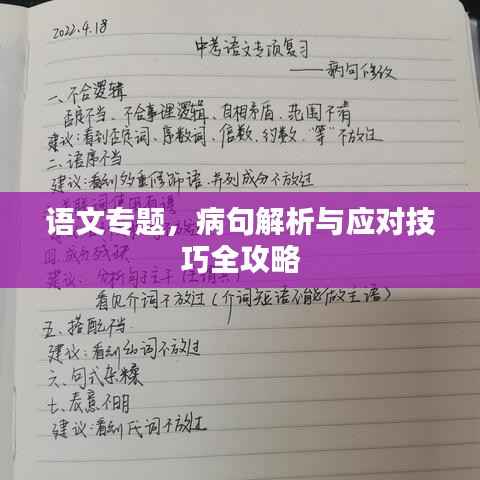 2022.4.18
中考语文专项复习
——病句修改
一、不合逻辑
否定不当、不合事理逻辑、自相矛盾、范围不清
建议：看到否定词、序数词、倍数、约数、“等”不放过
二、语序不当
建议：看到多重修饰语、并列成分不放过
语文专题，病句解析与应对技
巧全攻略
四、成分残缺
看见介词不放过（介词短语不能做主语）
五、搭配不当
建议：看到动词不放过
六、句式杂糅
七、表意不明
建议：看到代词不放过